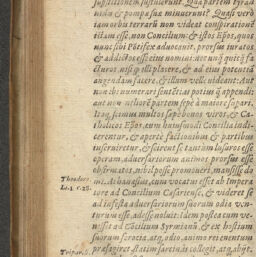 suspitionem sustulerunt. Qua partem tyrã
nidis & pompa suæ minuerunt. Quis verò
tam orbis terraru non videt conspirationẽ
illam esse, non Concilium: & istos Epõs, quos
nunc sibi Põtifex advocauit, prorsus iuratos
& addictos esse eius nomini: nec aliud quicq̃ fa
cturos nisi q̃d illi placere, & ad eius potentiã
augendam facere, & illum velle videant: aut
non ibi numerari sententias potius q̃ appendi:
aut non meliorẽ partem sæpè à maiore superari.
Itaq̃, scimus multos sæpè bonos viros, & Ca-
tholicos Epõs, cum huiusmodi Concilia indi-
cerentur, & apertè factionibus & partibus
inseruiretur, & scirent se tantùm lusuros esse
operam, aduersariorum animos prorsus esse
obfirmatos, nihil posse promoueri, mansisse do-
mi. Athanasius, cum vocatus esset ab Impera-
tore ad Concilium Cæsariense, & videret se
ad infesta aduersariorum suorum odia ven-
turum esse, adesse noluit: Idem postea cum ve-
nisset ad Cõcilium Syrmianũ, & ex hostium
suorum ferocia, atq̃ odio, animo rei euentum
præsagiret, statim sarcinas collegit, atq̃ abijt.
Theodore.
li. 1. c. 28.
Tripar. li.